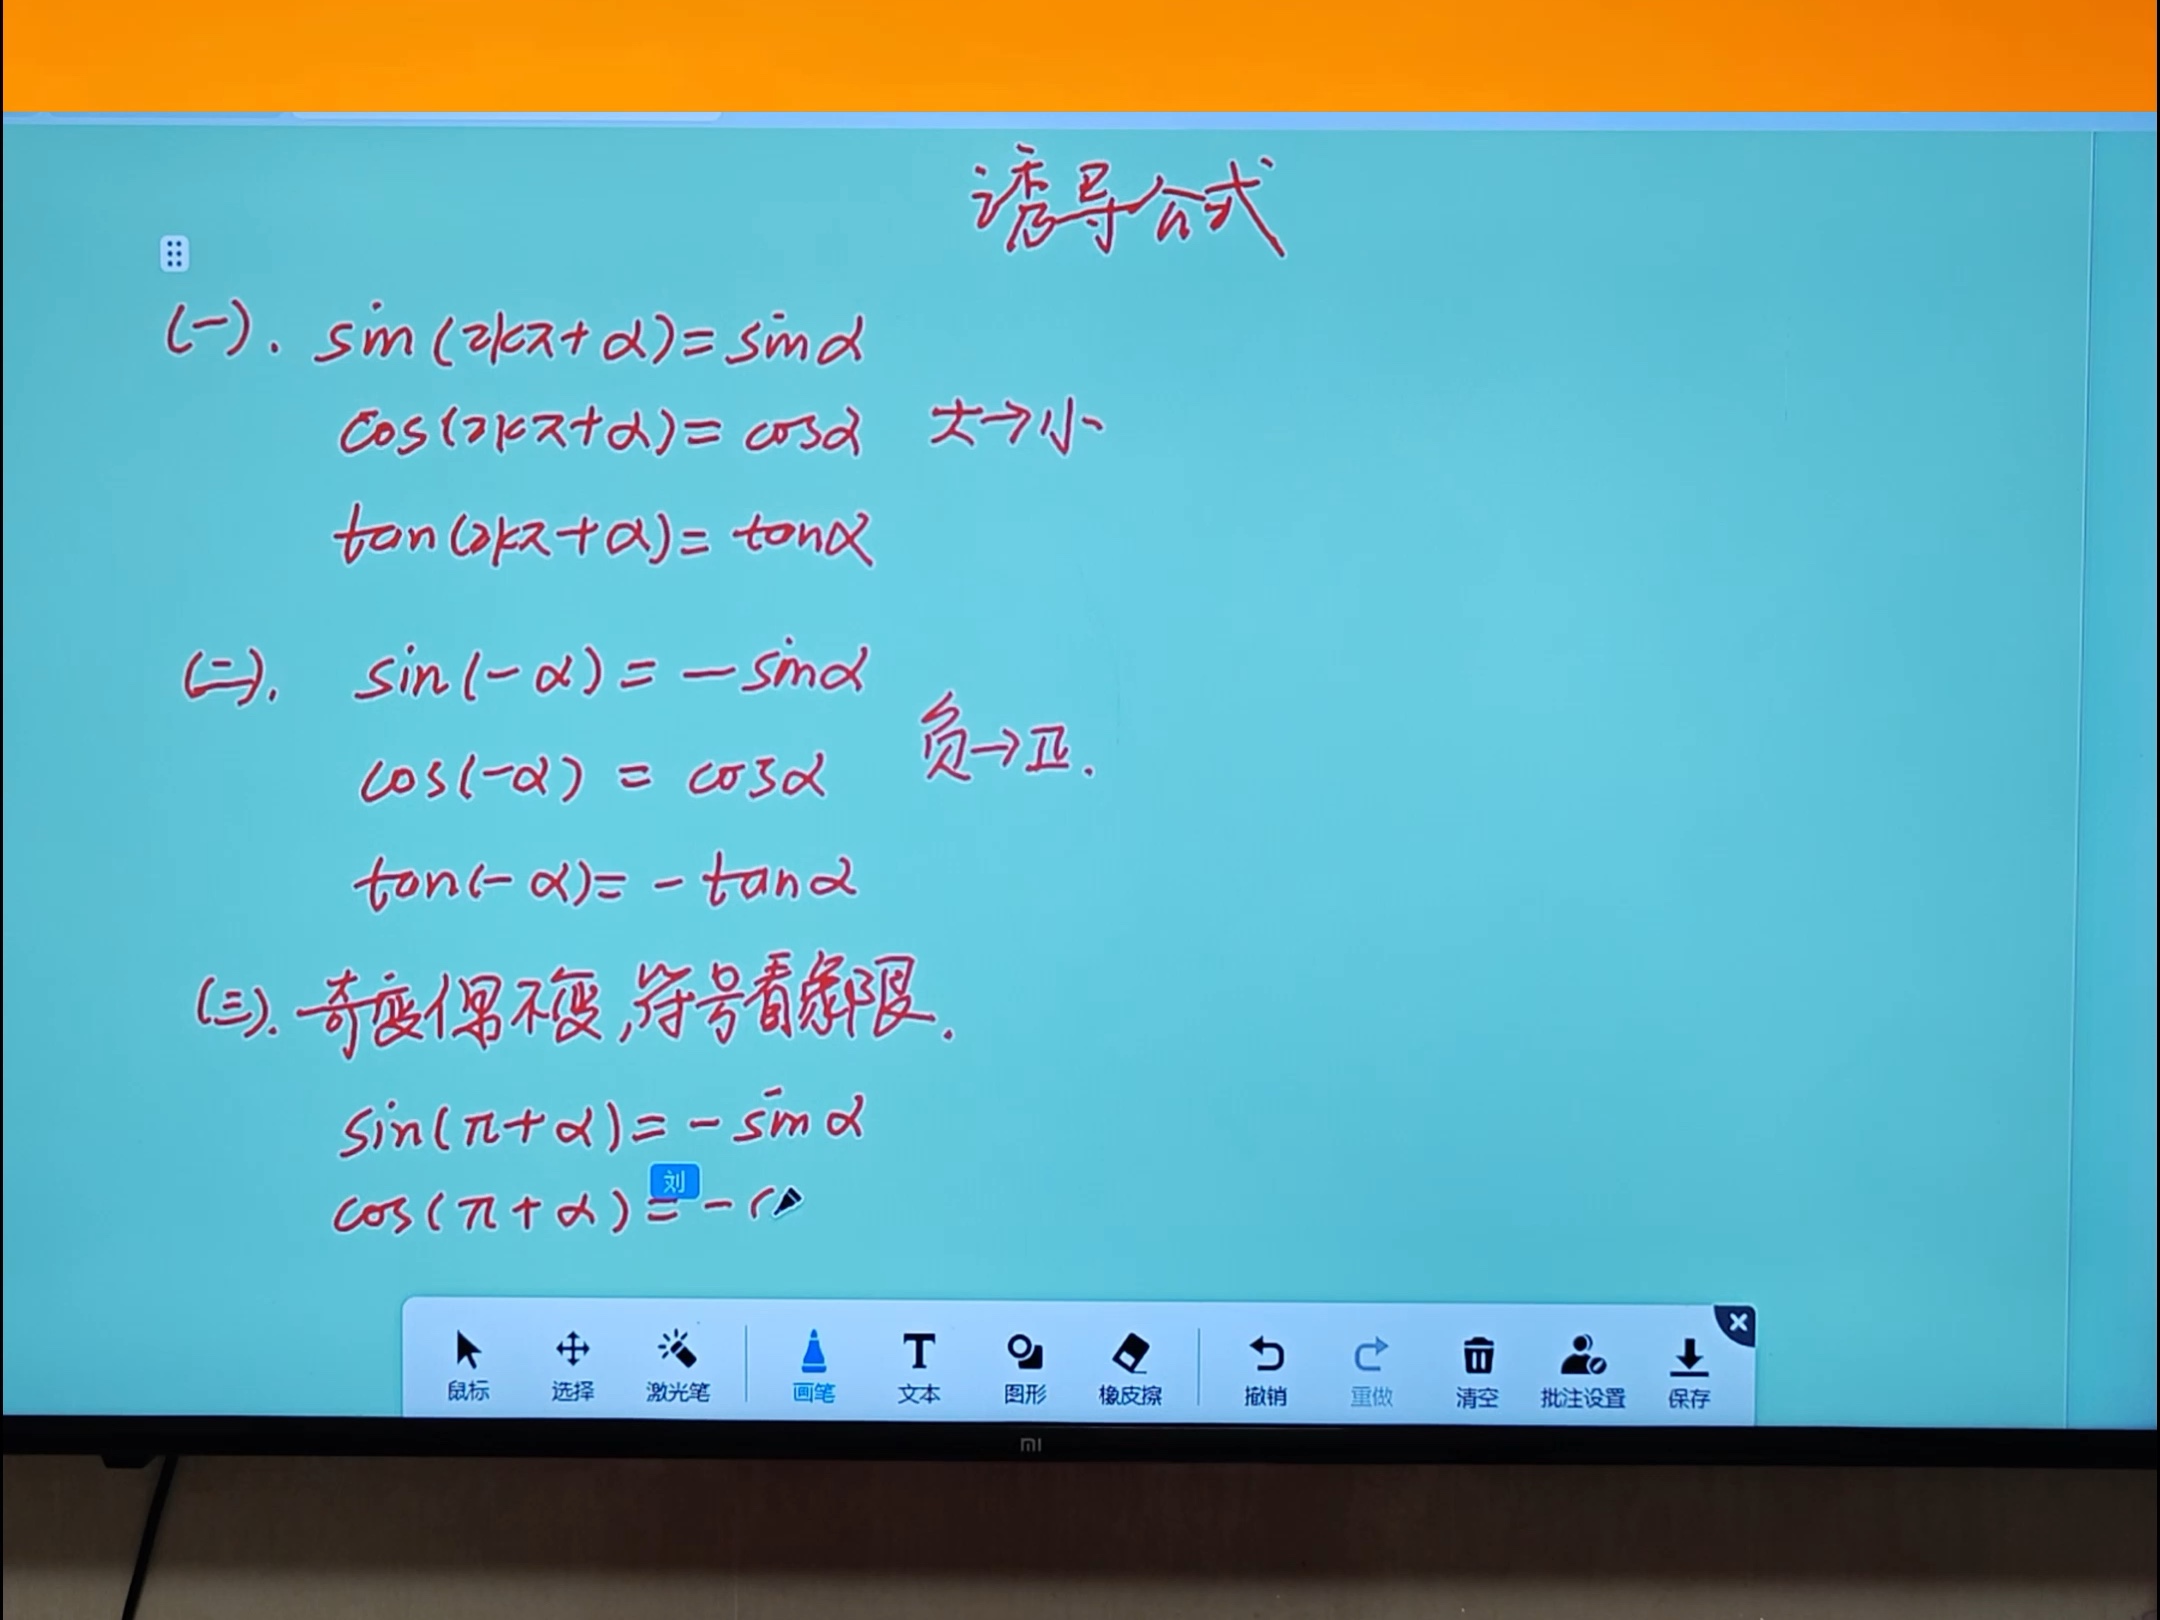 诱导公式
(一). sin(2kπ+α)=sinα
cos(2kπ+α)=cosα 大→小
tan(2kπ+α)=tanα
(二). sin(-α)=-sinα
cos(-α)=cosα 负→正.
tan(-α)=-tanα
(三). 奇变偶不变,符号看象限.
sin(π+α)=-sinα
刘
cos(π+α)=-c
鼠标 选择 激光笔 画笔 文本 图形 橡皮擦 撤销 重做 清空 批注设置 保存
mi